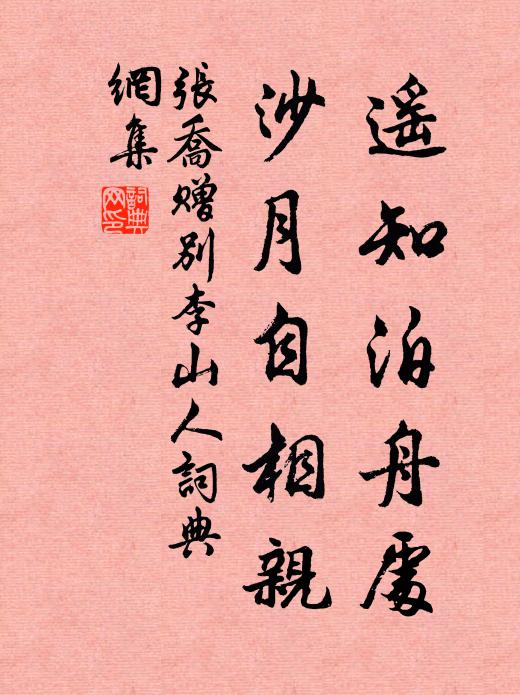 遥知泊舟處
沙月自相親
張喬贈别李山人詞典
網集
詞典
网印